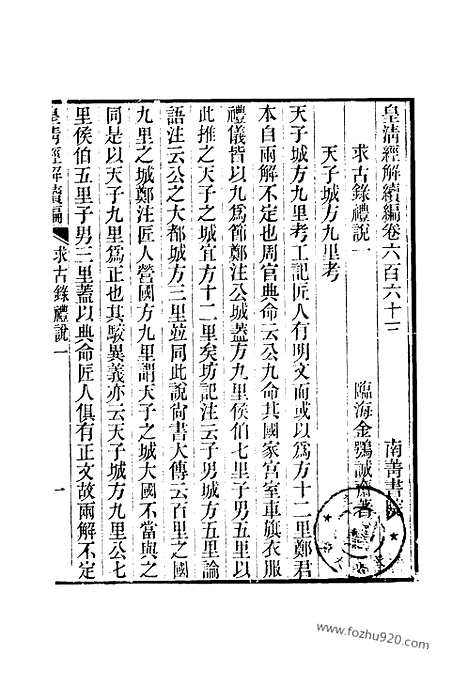 皇清經解續編卷六百六十三　南菁書院
求古錄禮說一　臨海金鶚誠齋著
天子城方九里考
天子城方九里考工記匠人有明文而或以爲方十二里鄭君
本自兩解不定也周官典命云公九命其國家宮室車旗衣服
禮儀皆以九爲節鄭注公城蓋方九里侯伯七里子男五里以
此推之天子之城宜方十二里矣坊記注云子男城方五里論
語注云公之大都城方三里竝同此說尙書大傳云百里之國
九里之城鄭注匠人營國方九里謂天子之城大國不當與之
同是以天子九里爲正也其駁異義亦云天子城方九里公七
里侯伯五里子男三里蓋以典命匠人俱有正文故兩解不定
皇清經解續編　求古錄禮說一　一
www.fozhu920.com